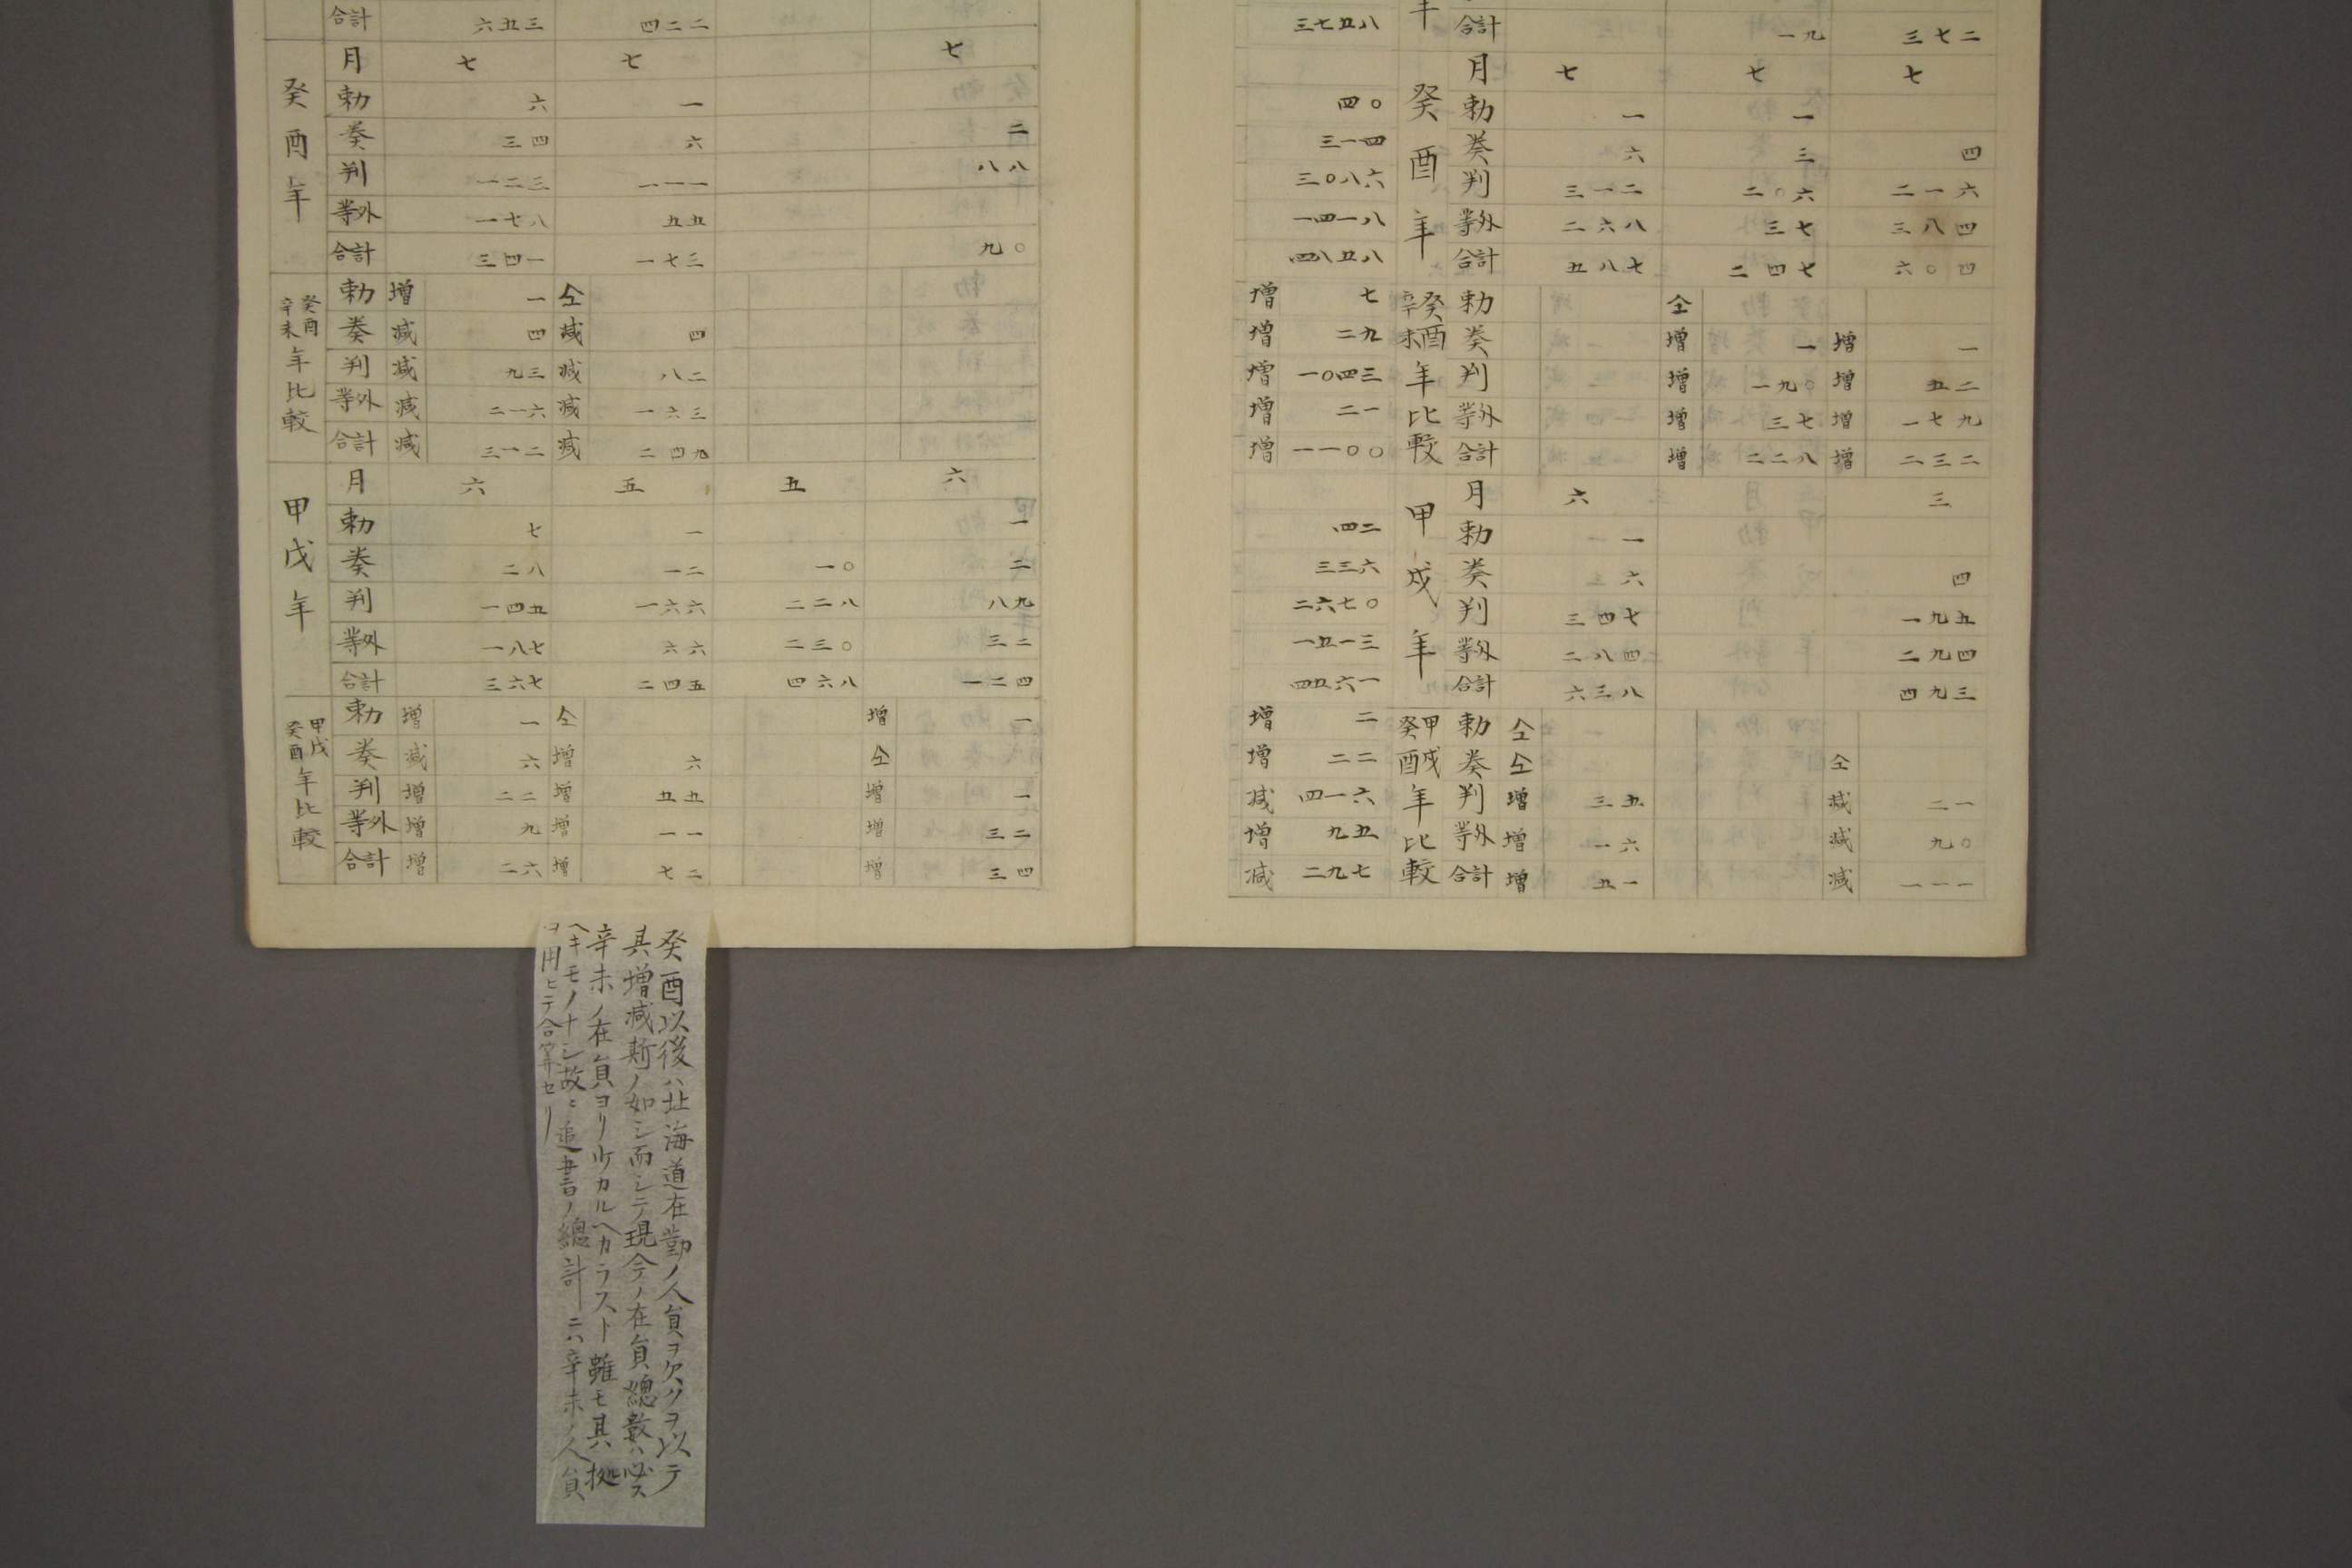 年 合計 一九 三七二
三七五八
癸酉年
月 七 七 七
勅 一 一
奏 六 三 四
判 三一二 二〇六 二一六
等外 二六八 三七 三八四
合計 五八七 二四七 六〇四
四〇
三一四
三〇八六
一四一八
四八五八
癸酉辛未年比較
勅 仝
奏 増 一 増 一
判 増 一九〇 増 五二
等外 増 三七 増 一七九
合計 増 二二八 増 二三二
増 七
増 二九
増 一〇四三
増 二一
増 一一〇〇
甲戌年
月 六 三
勅 一
奏 六 四
判 三四七 一九五
等外 二八四 二九四
合計 六三八 四九三
四二
三三六
二六七〇
一五一三
四五六一
甲戌癸酉年比較
勅 仝
奏 仝 仝
判 増 三五 減 二一
等外 増 一六 減 九〇
合計 増 五一 減 一一一
増 二
増 二二
減 四一六
増 九五
減 二九七
合計 六五三 四二二
癸酉年
月 七 七 七
勅 六 一
奏 三四 六 二
判 一二三 一一一 八八
等外 一七八 五五
合計 三四一 一七三 九〇
癸酉辛未年比較
勅 増 一 仝
奏 減 四 減 四
判 減 九三 減 八二
等外 減 二一六 減 一六三
合計 減 三一二 減 二四九
甲戌年
月 六 五 五 六
勅 七 一 一
奏 二八 一二 一〇 二
判 一四五 一六六 二二八 八九
等外 一八七 六六 二三〇 三二
合計 三六七 二四五 四六八 一二四
甲戌癸酉年比較
勅 増 一 仝 増 一
奏 減 六 増 六 仝
判 増 二二 増 五五 増 一
等外 増 九 増 一一 増 三二
合計 増 二六 増 七二 増 三四
癸酉以後ハ北海道在勤ノ人員ヲ欠クヲ以テ
其増減斯ノ如シ而シテ現今ノ在員總数ハ必ス
辛未ノ在員ヨリ少カルヘカラスト雖モ其拠
ヘキモノナシ故ニ追書ノ總計ニハ辛未ノ人員
ヲ用ヒテ合算セリ